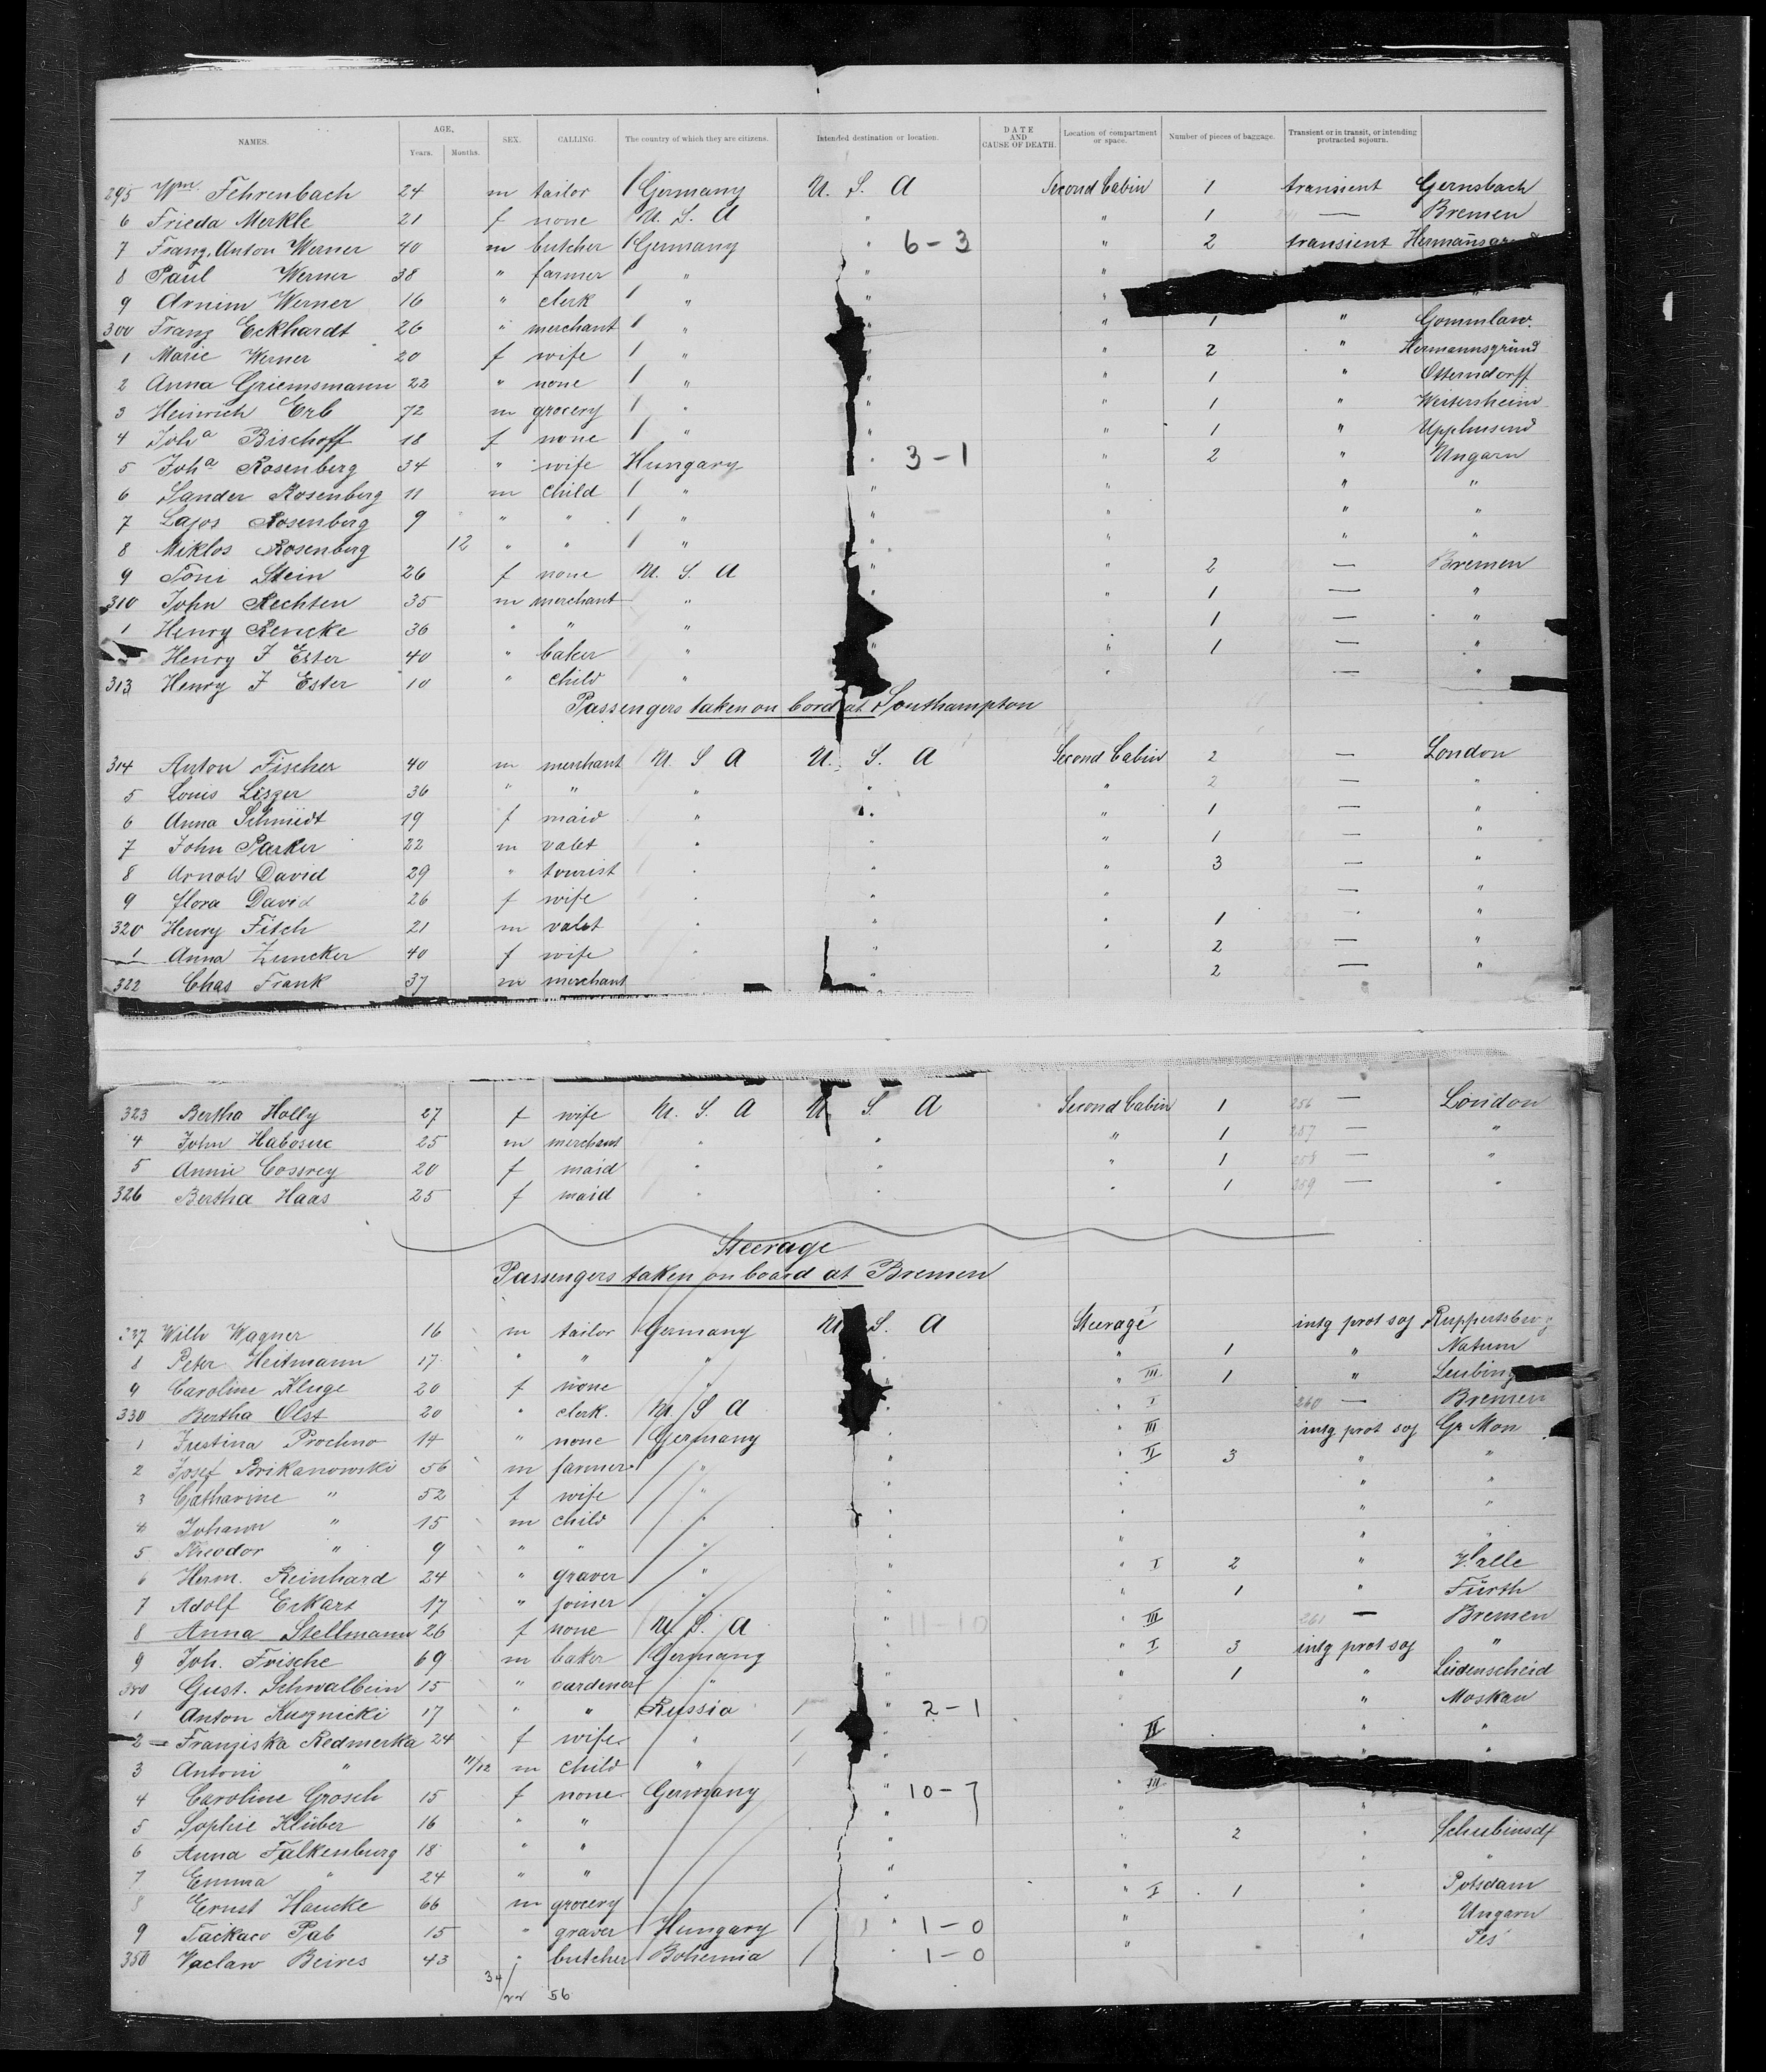 NAMES. AGE, Years. Months. SEX. CALLING. The country of which they are citizens. Intended destination or location. DATE AND CAUSE OF DEATH. Location of compartment or space. Number of pieces of baggage. Transient or in transit, or intending protracted sojourn.
295 Wm. Fehrenbach 24 m tailor Germany U. S. A Second Cabin 1 transient Gernsbach
6 Frieda Merkle 21 f none U. S. A " " 1 — Bremen
7 Franz Anton Werner 40 m butcher Germany " 6-3 " 2 transient
8 Paul Werner 38 " farmer " " "
9 Arnim Werner 16 " clerk " " "
300 Franz Eckhardt 26 " merchant " " " 1 " Gommlaw.
1 Marie Werner 20 f wife " " " 2 " Hermannsgründ
2 Anna Griemsmann 22 " none " " " 1 " Otterndorff
3 Heinrich Erb 72 m grocery " " " 1 " Weitersheim
4 Joha Bischoff 18 f none " " " 1 " Upphusend
5 Joha Rosenberg 34 " wife Hungary " 3-1 " 2 " Ungarn
6 Sander Rosenberg 11 m child " " " " "
7 Lajos Rosenberg 9 " " " " " " "
8 Miklos Rosenberg 12 " " " " " " "
9 Toni Stein 26 f none U. S. A " " 2 — Bremen
310 John Rechten 35 m merchant " " " 1 — "
1 Henry Rencke 36 " " " 1 — "
Henry F Ester 40 " baker " " " 1 — "
313 Henry F Ester 10 " child " " — "
Passengers taken on bord at Southampton
314 Anton Fischer 40 m merchant U S A U. S. A Second Cabin 2 — London
5 Louis Liszer 36 " " " " " 2 — "
6 Anna Schmidt 19 f maid " " " 1 — "
7 John Parker 22 m valet " " " 1 — "
8 Arnold David 29 " tourist " " " 3 — "
9 flora David 26 f wife " " " — "
320 Henry Fitch 21 m valet " " " 1 "
1 Anna Zuncker 40 f wife " " " 2 — "
322 Chas Frank 37 m merchant " 2 — "
323 Bertha Holly 27 f wife U. S. A U S. A Second Cabin 1 256 — London
4 John Habosuc 25 m merchant " " " 1 257 — "
5 Annie Cossrey 20 f maid " " " 1 258 — "
326 Bertha Haas 25 f maid " " " 1 259 — "
Steerage
Passengers taken on board at Bremen
327 Wilh Wagner 16 m tailor Germany U S. A Steerage intg prot soj Ruppertsburg
8 Peter Heitmann 17 " " " " " 1 " Natum
9 Caroline Kluge 20 f none " " III 1 " Leubing
330 Bertha Olst 20 " clerk. U S A " I 260 — Bremen
1 Justina Prochno 14 " none Germany " " III intg prot soj Gr Mon
2 Josef Brikanowski 56 m farmer " " " II 3 " "
3 Catharine " 52 f wife " " " "
4 Johann " 15 m child " " " "
5 Theodor " 9 " " " " " "
6 Herm. Reinhard 24 " graver " " " I 2 " Halle
7 Adolf Eckart 17 " joiner " " " 1 " Fürth
8 Anna Stellmann 26 f none U. S. A " 11-10 " III 261 — Bremen
9 Joh. Frische 69 m baker Germany " I 3 intg prot soj "
340 Gust. Schwalbein 15 " gardener " " " 1 " Lüdenscheid
1 Anton Kusznicki 17 " " Russia " 2-1 " " Moskau
2 Franziska Redmerka 24 f wife " " " II " "
3 Antoni " 11/12 m child " " "
4 Caroline Grosch 15 f none Germany " 10-7 " III
5 Sophie Klüber 16 " " " " "
6 Anna Falkenburg 18 " " " " 2 " Schubinsdf
7 Emma " 24 " " " " " "
8 Ernst Haucke 66 m grocery " " I 1 " Potsdam
9 Tackaco Pab 15 " graver Hungary " 1-0 " " Ungarn
350 Vaclaw Beires 43 " butcher Bohemia " 1-0 " " Pes
34
/22 56